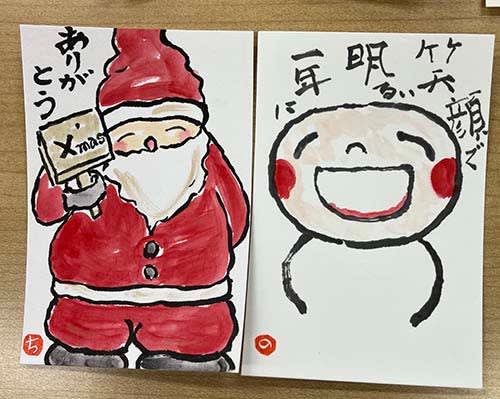 ありが
とう
X'mas
ち
笑顔で
明るい
一年に
の